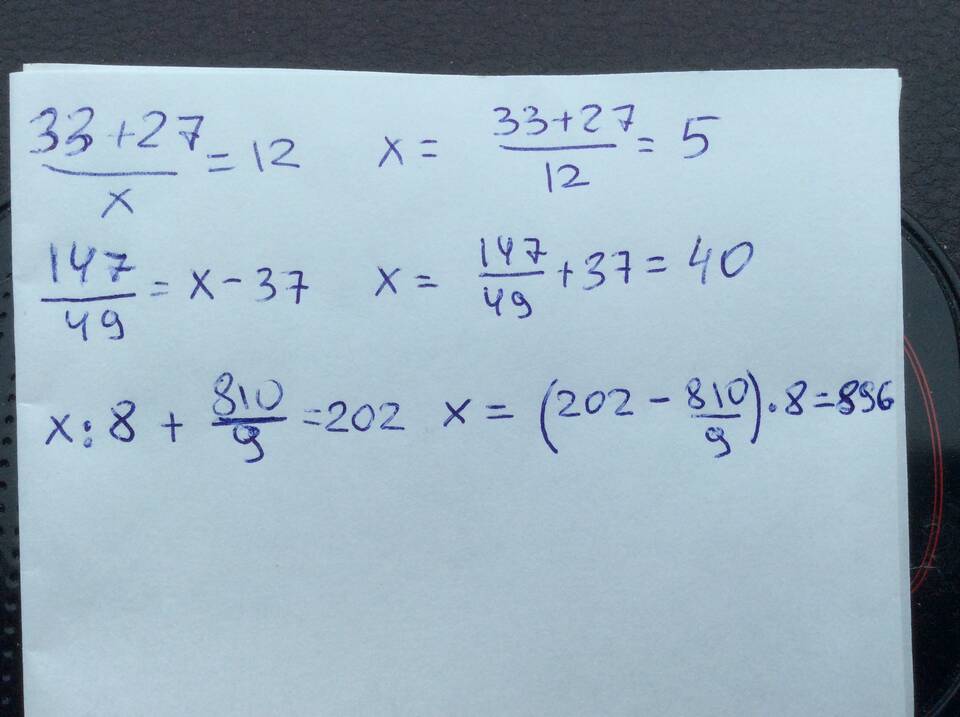 33+27/x = 12 x = 33+27/12 = 5
147/49 = x - 37 x = 147/49 + 37 = 40
x : 8 + 810/9 = 202 x = (202 - 810/9) · 8 = 896